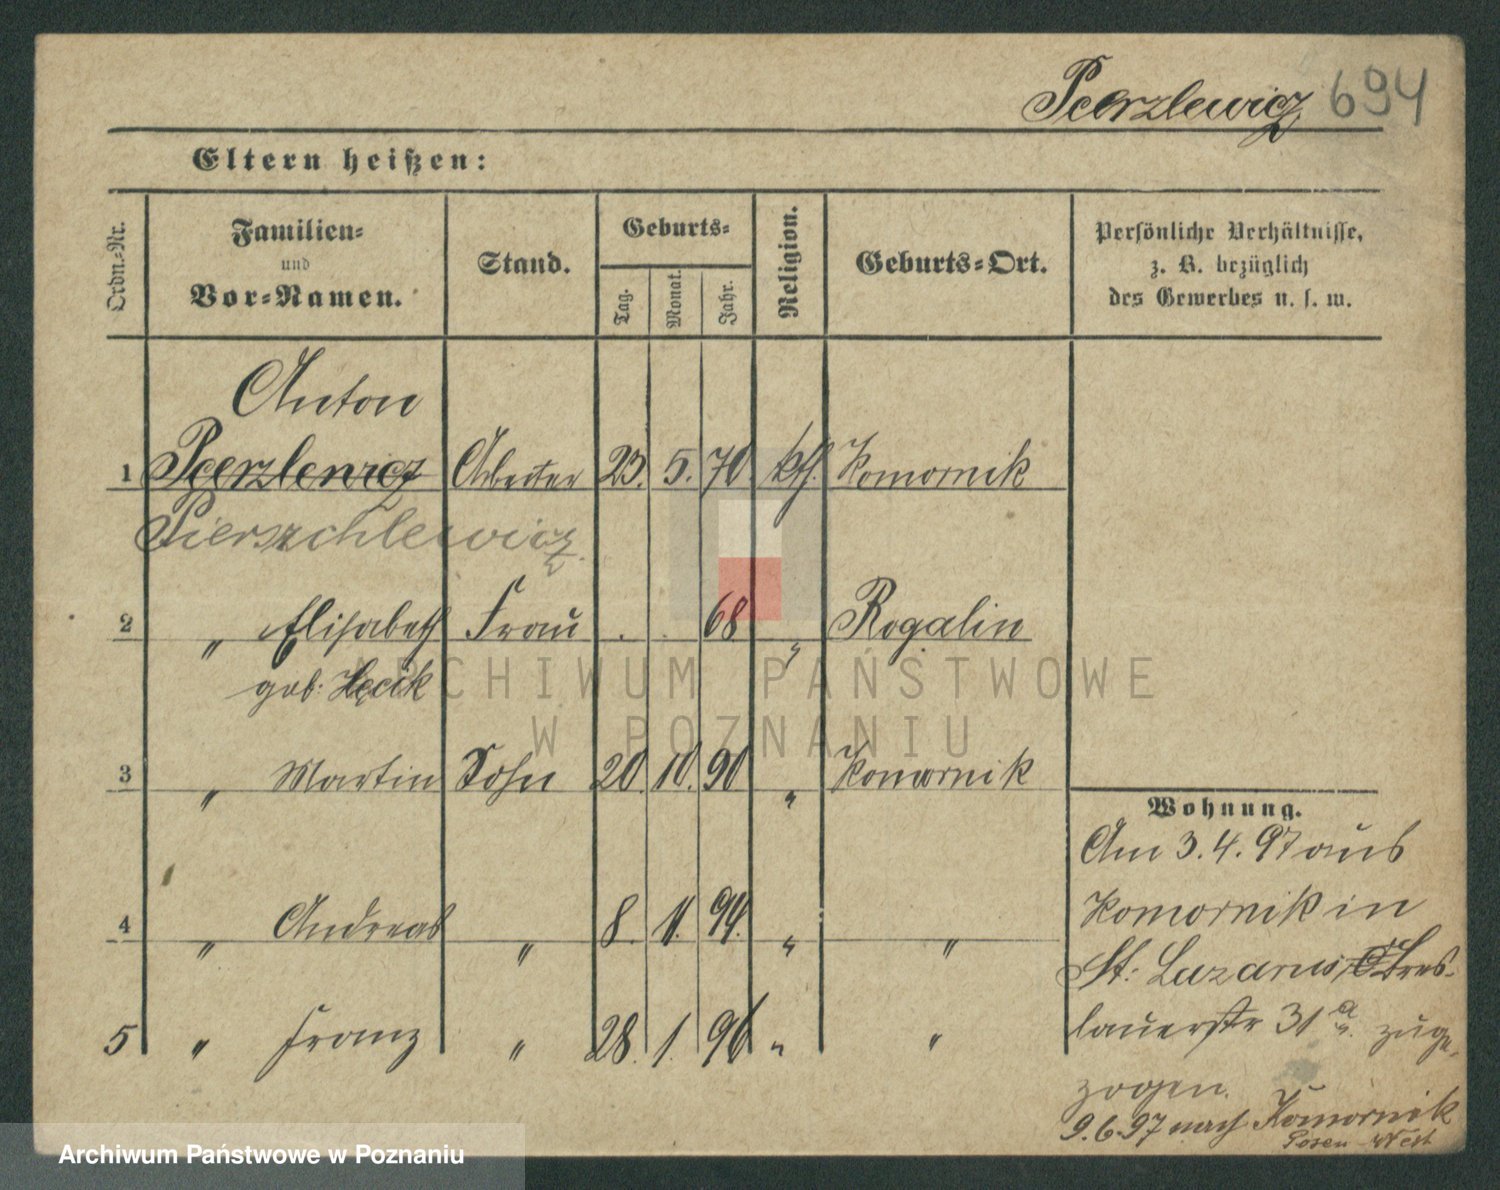 Pcerzlewicz 694
Eltern heißen:
Ordn.-Nr. Familien- und Vor-Namen. Stand. Geburts- Tag. Monat. Jahr. Religion. Geburts-Ort. Persönliche Verhältnisse, z. B. bezüglich des Gewerbes u. s. w.
Anton
1 Pcerzlewicz Arbeiter 23. 5. 70. kth. Komornik
Pierszchlewicz
2 " Elisabeth Frau . . 68 " Rogalin
geb: Hęcik
3 " Martin Sohn 20. 10. 90 " Komornik
Wohnung.
Am 3.4.97 aus
4 " Andreas " 8. 11. 94. " "
Komornik in
St: Lazarus, Bres-
5 " Franz " 28. 1. 96 " "
lauerstr 31a zuge-
zogen.
9.6.97 nach Komornik
Posen West
ARCHIWUM PAŃSTWOWE
W POZNANIU
Archiwum Państwowe w Poznaniu